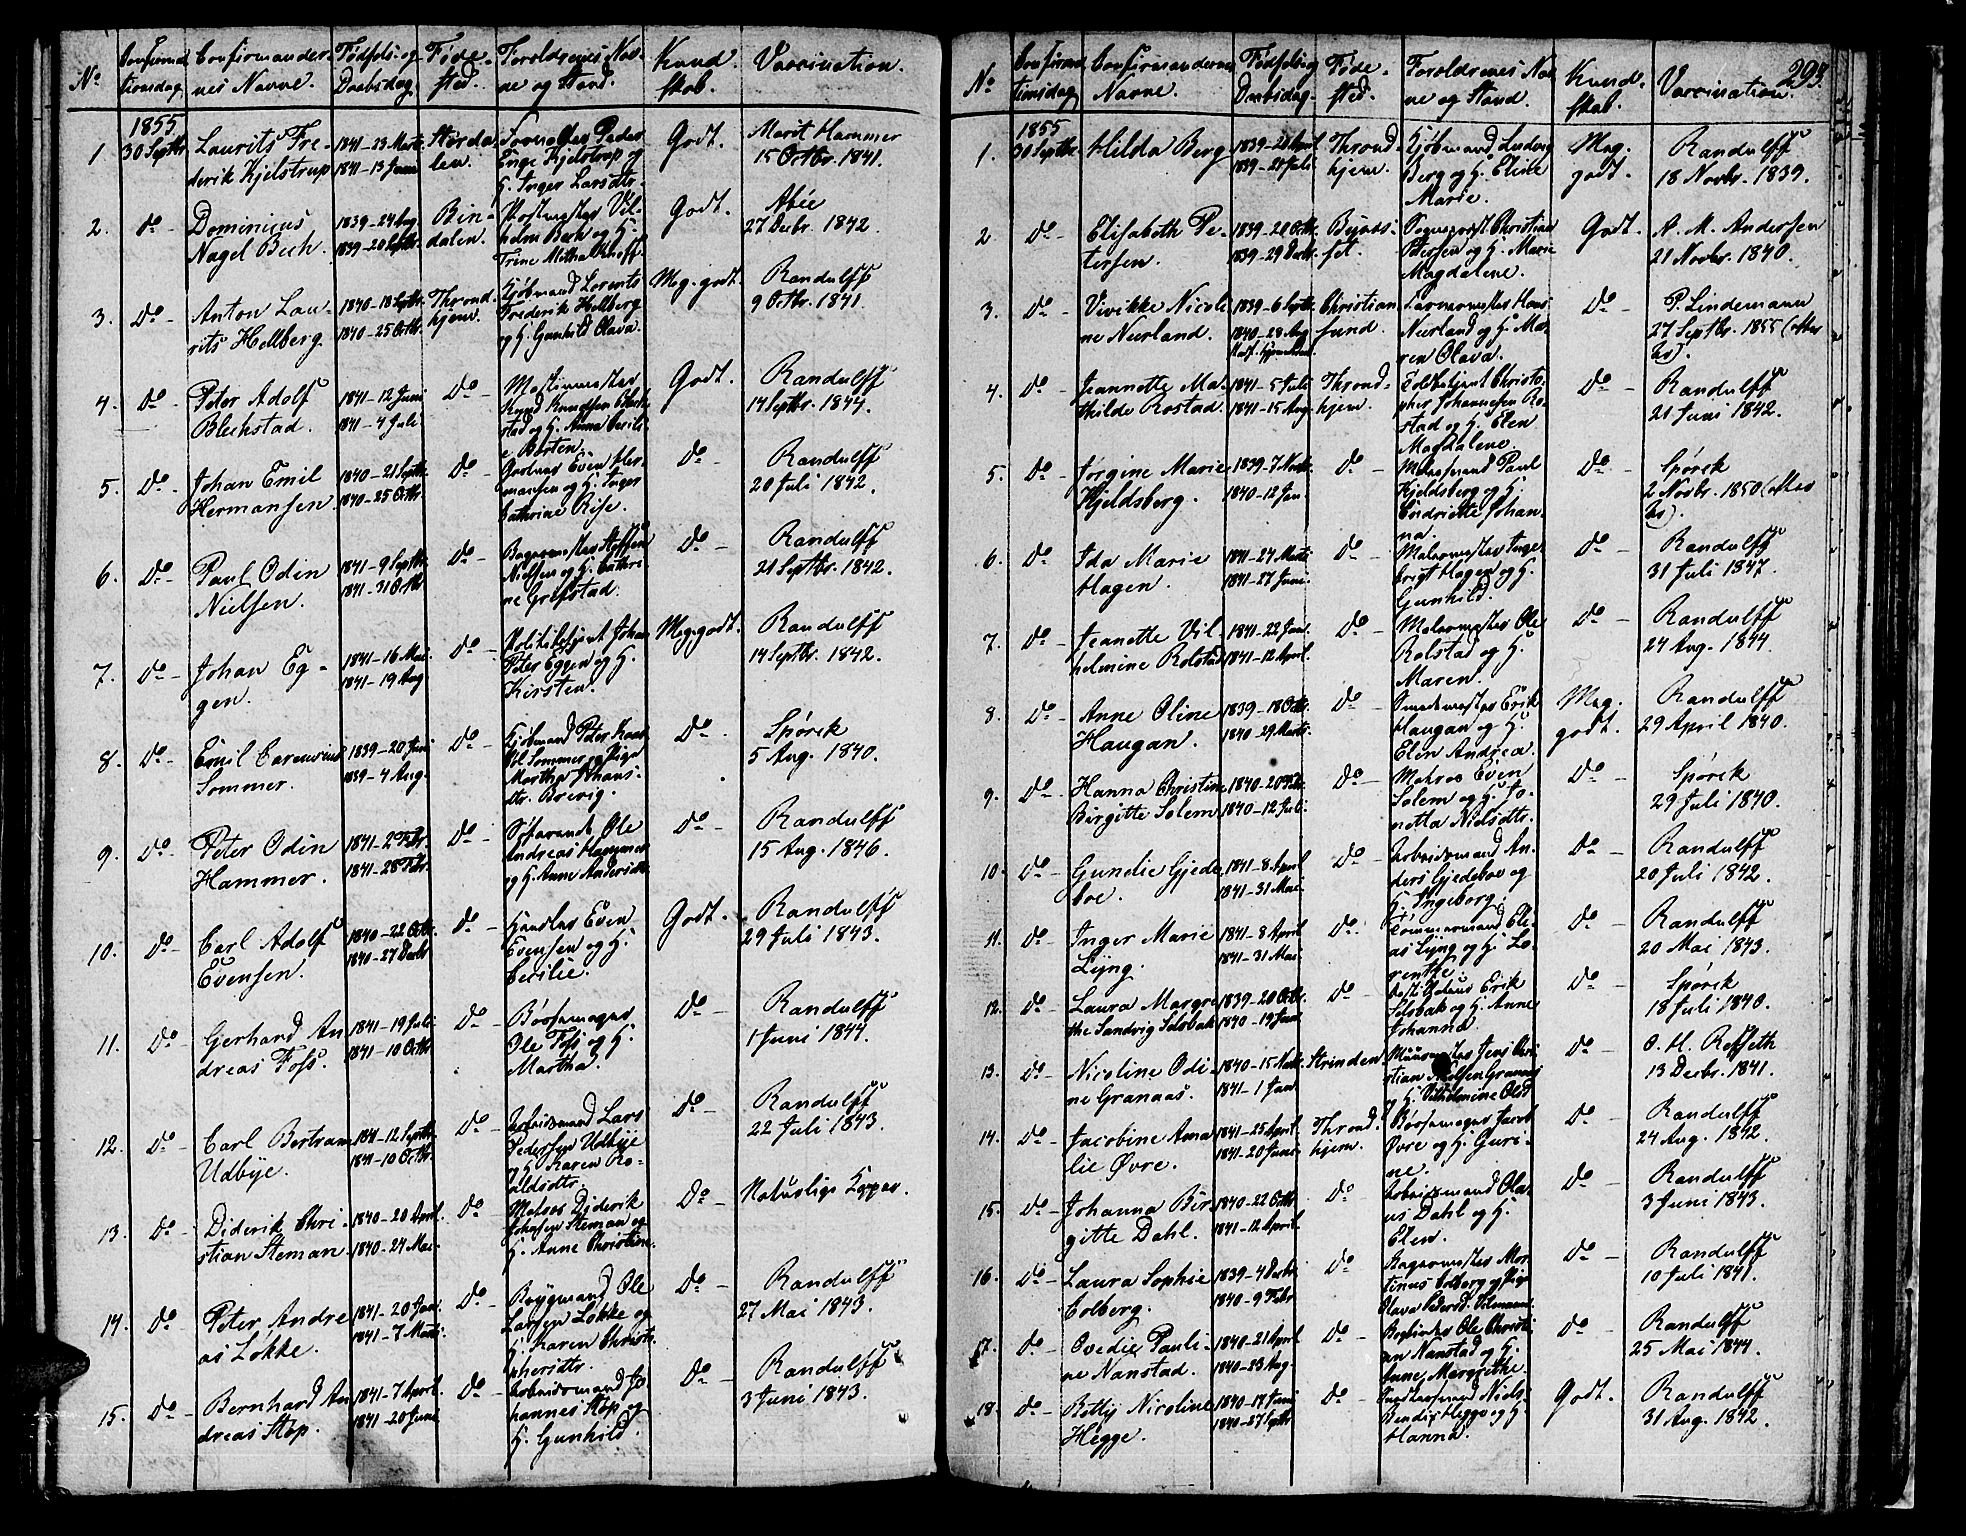 No
Confirma-
tionsdag
Confirmander-
nes Navne.
Fødsels- og
Daabsdag
Føde-
sted.
Forældrenes Nav-
ne og Stand.
Kund-
skab.
Vaccination.
1855
1
30 Septbr.
Laurits Fre-
derik Kjelstrup
1841 - 23 Marts
1841 - 13 Juni
Størda-
len.
Enge Kjelstrup og
H. Inger Larsdtr.
Godt.
Marit Hammer
15 Octbr. 1841.
2.
do -
Dominicus
Nagel Bech.
1839 - 24 Aug
1839 - 20 Septbr.
Bin-
dalen.
Postmester Vil-
helm Bech og H.
Godt.
27 Decbr. 1842
3.
Do -
Anton Lau-
rits Hellberg
1840 - 18 Septbr.
1840 - 25 Octbr.
Thrond-
hjem.
Kjøbmand Lorents
Frederik Hellberg
og H. Gunhild Olava.
Meg. godt.
Randulff
9 Octbr. 1841.
4.
Do -
Peter Adolf
Blechstad.
1841 - 12 Juni
1841 - 4 Juli
Do -
Godt.
Randulff
14 Septbr. 1844.
5.
Do -
Johan Emil
Hermansen
1840 - 21 Septbr.
1840 - 25 Octbr.
Do -
Gartner Even Her-
mansen og H. Inger
Cathrine Rise.
Do -
Randulff
20 Juli 1842.
6.
Do -
Paul Odin
Nielsen.
1841 - 9 Septbr.
1841 - 31 Octbr.
Do -
Bagermester Steffen
Nielsen og H. Cathri-
ne Grefstad.
Do -
Randulff
21 Septbr. 1842.
7.
Do -
Johan Eg-
gen.
1841 - 16 Mai
1841 - 19 Aug
Do -
Politibetjent Johan
Peter Eggen og H.
Kirsten.
Meg. godt.
Randulff
14 Septbr. 1842.
8.
Do -
Emil Carenius
Sommer.
1839 - 20 Juni
1839 - 4 Aug.
Do -
Kjøbmand Peter
Sommer og Pige
Martha Johans-
dtr. Brevig.
Do -
Spørck
5 Aug. 1840.
9.
Do -
Peter Odin
Hammer.
1841 - 2 Febr.
1841 - 28 Febr.
Do -
Søfarende Ole
Andreas Hammer
og H. Anne Andersdtr.
Do -
Randulff
15 Aug. 1846.
10.
Do -
Carl Adolf
Evensen.
1840 - 22 Octbr.
1840 - 27 Decbr.
do -
Handler Even
Evensen og H.
Cecilie.
Godt.
Randulff
29 Juli 1843.
11.
Do -
Gerhard An-
dreas Foss.
1841 - 19 Juli
1841 - 10 Octbr.
Do -
Børsemager
Ole Foss og H.
Martha.
Do -
Randulff
1 Juni 1844.
12.
Do -
Carl Bertram
Udbye.
1841 - 12 Septbr.
1841 - 10 Octbr.
Do -
Arbeidsmand Lars
Pedersen Udbye
og H. Karen Ro-
aldsdtr.
Do -
Randulff
22 Juli 1843.
13.
Do -
Diderik Chri-
stian Steman
1840 - 20 April
1840 - 24 Mai
Do -
Matros Diderik
Johasen Steman og
H. Anne Christine.
Do -
Naturlige Kopper.
14.
Do -
Peter Andre-
as Løkke.
1841 - 20 Jan.
1841 - 7 Marts
Do -
Brygmand Ole
Larsen Løkke og
H. Karen Christo-
phersdtr.
Do -
Randulff
27 Mai 1843.
15.
Do -
Bernhard An-
dreas Stop.
1841 - 7 April
1841 - 20 Juni
Do -
Arbeidsmand Jo-
hannes Stop og
H. Gunhild.
Do -
Randulff
3 Juni 1843.
293.
No
Confirma-
tionsdag
Confirmandernes
Navne.
Fødsels- og
Daabsdag.
Føde-
sted.
Forældrenes Nav-
ne og Stand.
Kund-
skab.
Vaccination.
1855
1.
30 Septbr.
Hilda Berg
1839 - 20 April
1839 - 21 Juli
Thrond-
hjem.
Kjøbmand Ludvig
Berg og H. Eline
Marie.
Meg.
godt.
Randulff
18 Novbr. 1839.
2.
Do -
Elisabeth Pe-
tersen.
1839 - 20 Octbr.
1839 - 29 Decbr.
Bynæs-
set.
Sognepræst Christian
Petersen og H. Marie
Magdalene.
Godt.
A. M. Andersen
21 Novbr. 1840.
3.
Do -
Vivikke Nicoli-
ne Neerland.
1839 - 6 Septbr.
1840 - 28 Aug
Christian-
sund.
Garvermester Hans
Neerland og H. Ma-
ren Olava.
Do -
P. Lindemann
27 Septbr. 1855 (Attest
4.
Do -
Jeannette Ma-
thilde Rostad.
1841 - 5 Juli
1841 - 15 Aug.
Thrond-
hjem.
Toldbetjent Christo-
pher Johannesen Ro-
stad og H. Elen
Magdalene.
Do -
Randulff
21 Juni 1842.
5.
Do -
Jørgine Marie
Kjeldsberg.
1839 - 7 Novbr.
1840 - 12 Jan.
Do -
Paul
Kjeldsberg og H.
Endriette Johan-
na.
Do -
Spørck
2 Novbr. 1850 (Attest
6.
Do
Ida Marie
Hagen.
1841 - 24 Marts
1841 - 27 Juni.
Do -
Malermester Inge-
brigt Hagen og H.
Gunhild.
Do -
Randulff
31 Juli 1847.
7.
Do -
Jeanette Vil-
helmine Rolstad
1841 - 22 Jan.
1841 - 12 April.
Do -
Malermester Ole
Rolstad og H.
Maren.
Do -
Randulff
24 Aug. 1844.
8.
Do -
Anne Oline
Haugan.
1839 - 18 Octbr.
1840 - 29 Marts
Do -
Smedmester Erik
Haugan og H.
Elen Andrea.
Meg.
godt.
Randulff
29 April 1840.
9.
Do -
Hanna Christine
Birgitte Solem
1840 - 20 Febr.
1840 - 12 Juli
Do -
Matros Even
Solem og H. Jo-
netta Nielsdtr.
Do -
Spørck
29 Juli 1840.
10.
Do -
Gundie Gjede-
boe.
1841 - 8 April
1841 - 31 Mai
Do -
Arbeidsmand An-
ders Gjedeboe og
H. Ingeborg.
Do -
Randulff
20 Juli 1842.
11.
Do -
Inger Marie
Lyng.
1841 - 8 April
1841 - 31 Mai
Do -
Tømmermand Ele-
as Lyng og H. Lo-
renthe.
Do -
Randulff
20 Mai 1843.
12.
Do -
Laura Margre-
the Sandvig Selsbak
1839 - 20 Octbr.
1840 - 19 Jan
Do -
Erik
Selsbak og H. Anne
Johanna
Do -
Spørck
18 Juli 1840.
13.
Do -
Nicoline Odi-
ne Granaas.
1840 - 15 Novbr.
1841 - 1 Jan
Strinden
Muurmester Jens Chri-
stian Granaas
og H. Vilhelmine
Do -
O. H. Refseth
13 Decbr. 1841.
14.
Do -
Jacobine Ama-
lie Øvre.
1841 - 25 April
1841 - 20 Juni
Thrond-
hjem.
Børsemager Jacob
Øvre og H. Guri-
ne.
Do -
Randulff
24 Aug. 1842.
15.
Do -
Johanna Bir-
gitte Dahl.
1840 - 22 Octbr.
1841 - 12 April.
Do -
Arbeidsmand Ola-
us Dahl og H.
Elen.
Do -
Randulff
3 Juni 1843.
16.
Do -
Laura Sophie
Colberg.
1839 - 4 Decbr.
1840 - 9 Febr.
Do -
Bagermester Mor-
tinus Colberg og Pige
Olava Pedersd.
Do -
Randulff
10 Juli 1841.
17.
Do -
Ovedie Pauli-
ne Nanstad.
1840 - 21 April
1840 - 23 Aug.
Do -
Bogbinder Ole Christi-
an Nanstad og H.
Anne Margrethe.
Do -
Randulff
25 Mai 1844.
18.
Do -
Betty Nicoline
Hegge.
1840 - 14 Juni
1840 - 27 Septbr.
Do -
Niels
Hegge og H.
Hanna.
Godt.
Randulff
31 Aug. 1842.